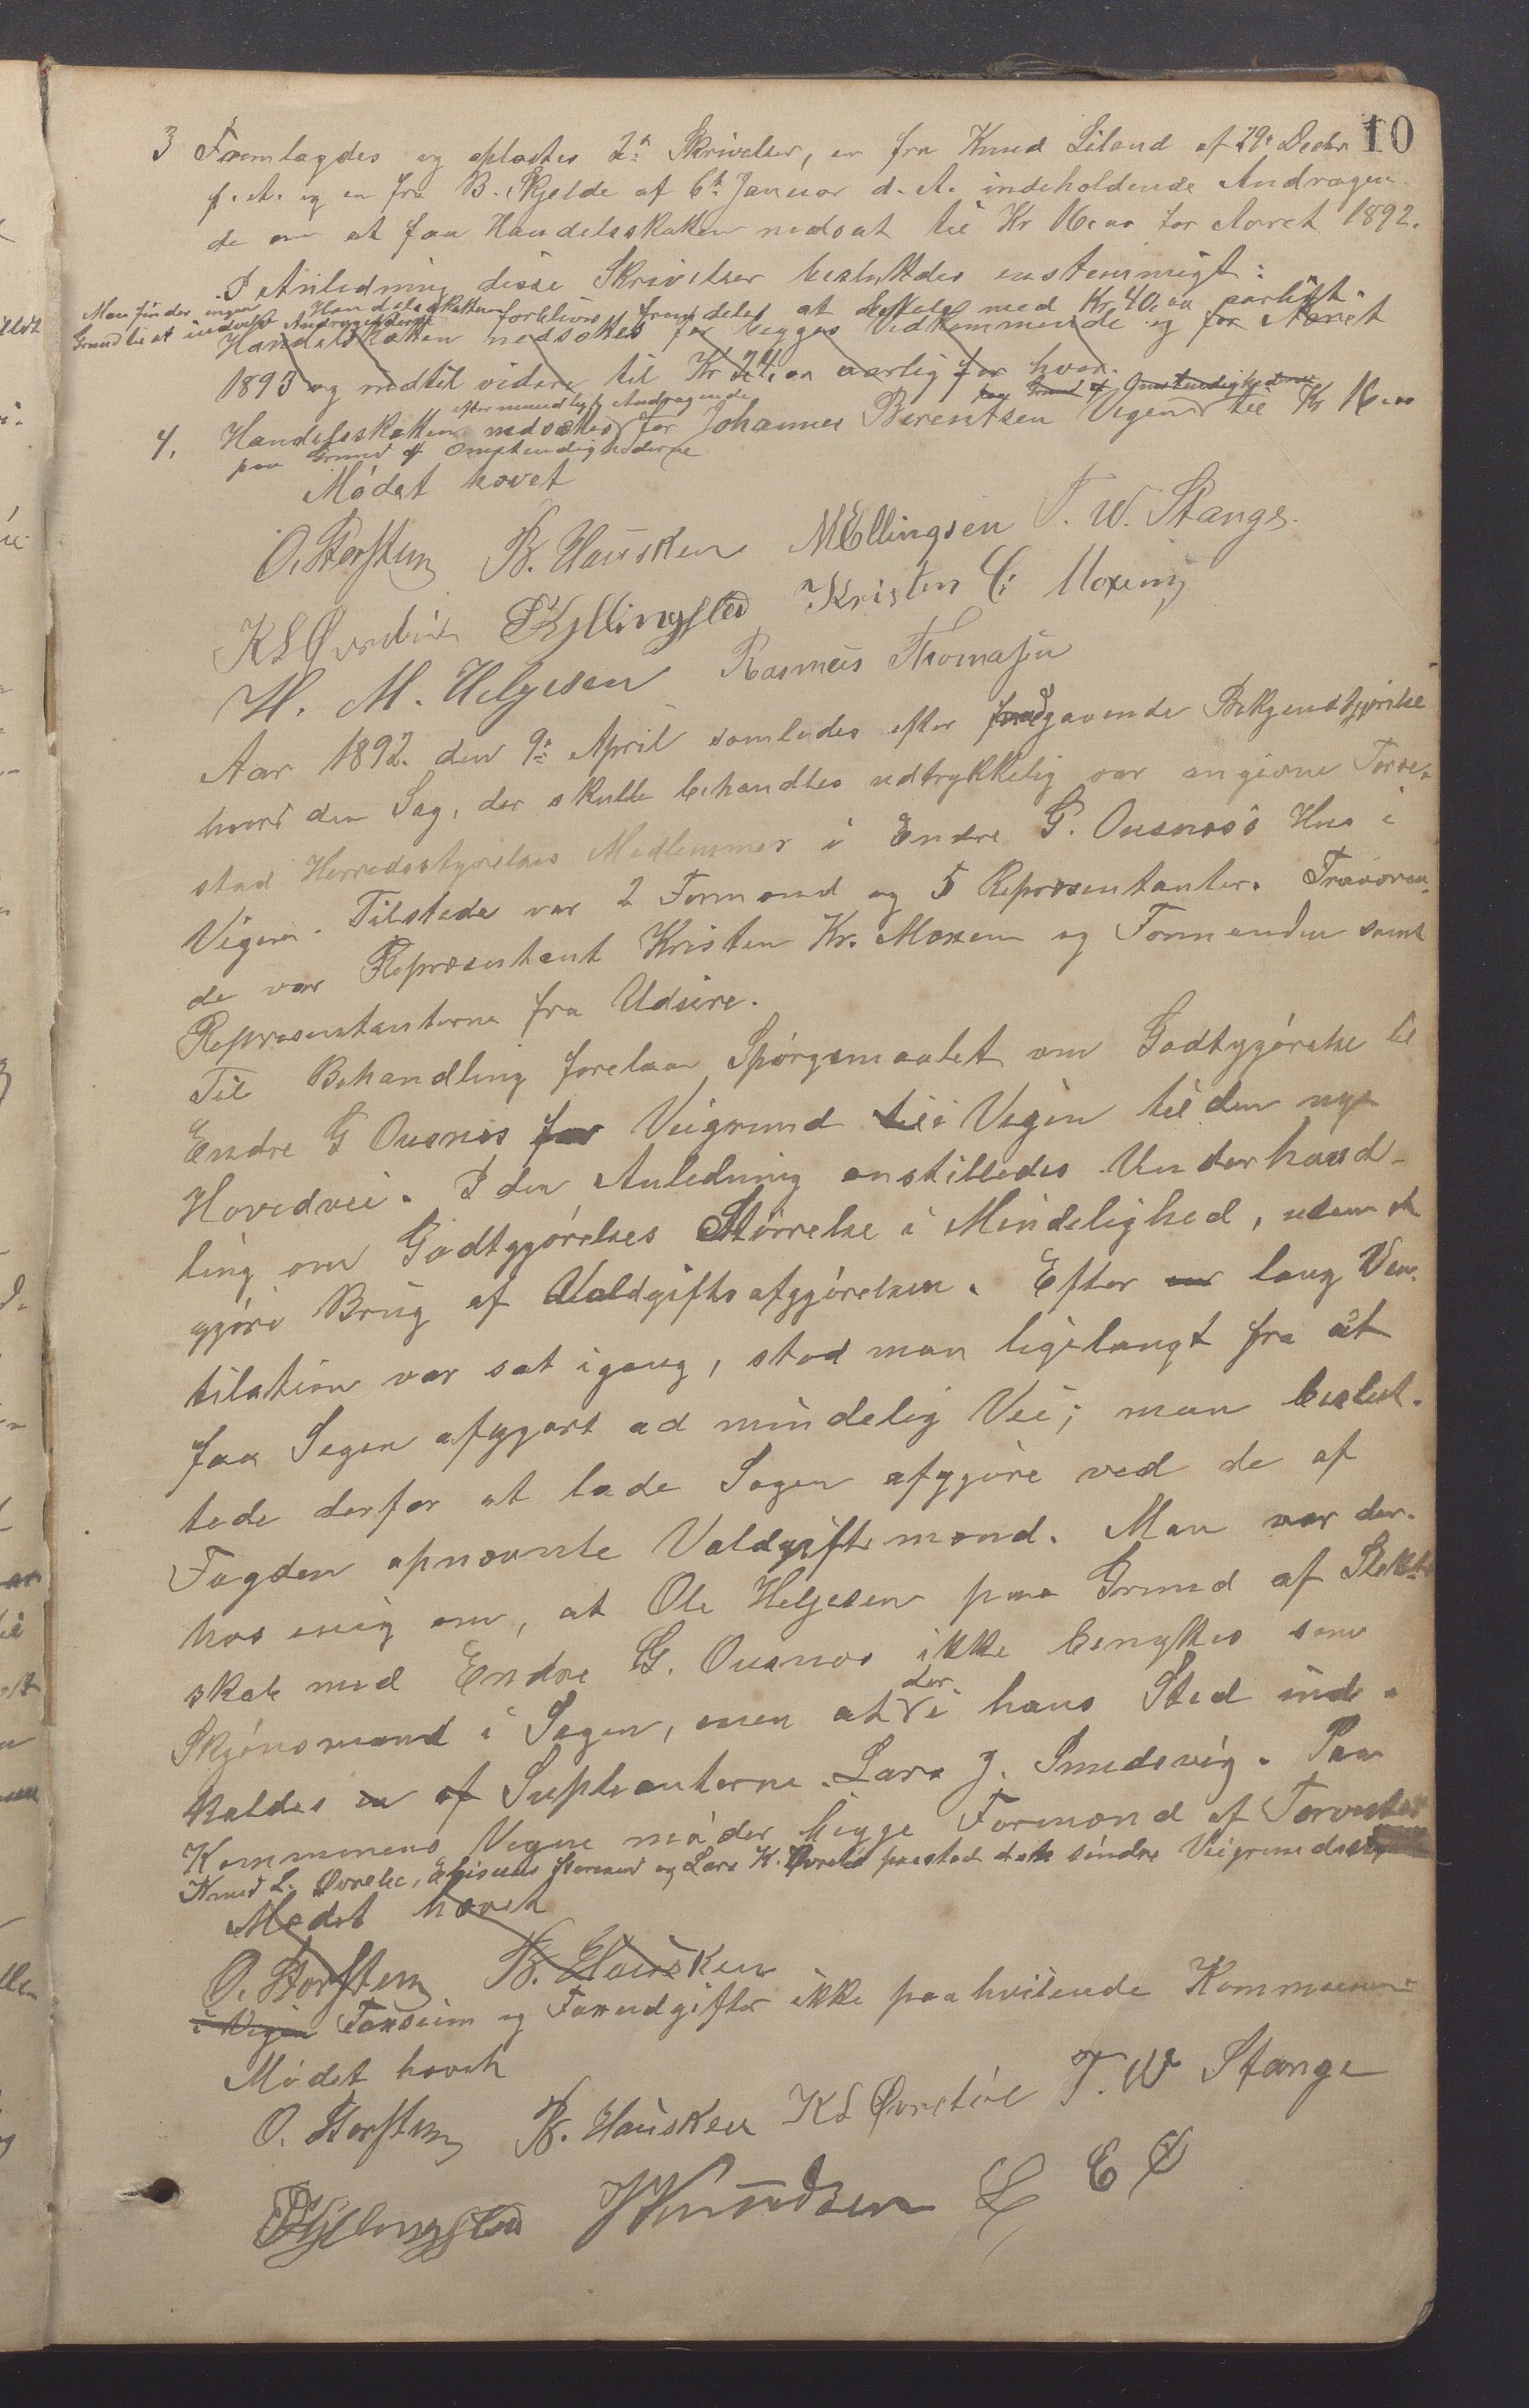 10
3 Fremlagdes og oplæstes 2de Skrivelser, en fra Knud Liland af 29de Decbr
f. A. og en fra B. Skjelde af 6te Januar d. A. indeholdende Andragen
de om at faa Handelsskatten nedsat til Kr 16.00 for Aaret 1892.
I Anledning disse Skrivelser besluttedes enstemmigt:
Man finder ingen Grund til at indvilge Andragenderne
Handelsskatten forbliver fremdeles at betales med Kr. 40.00 aarligt.
Handelsskatten nedsættes for begges Vedkommende og for Aaret
1893 og indtil videre til Kr 24.00 aarlig for hver.
efter mundtlig Andragende paa Grund af Omstendighederne
4. Handelsskatten nedsættes for Johannes Berentsen Vigen til Kr 16.00
paa Grund af Omstendighederne
Mødet hævet
O. Storstein B. Hausken M Ellingsen T. W. Stange.
K L Øvrebø P Kyllingstad Kristen C. Moxem
H. M. Helgesen Rasmus Thomasen
Aar 1892. den 9de April samledes efter foregaaende Bekjendtgjørelse
hvori den Sag, der skulle behandles udtrykkelig var angivne Torve-
stad Herredsstyrelses Medlemmer i Endre G. Ousnes's Hus i
Vigen. Tilstede var 2 Formænd og 5 Repræsentanter. Fraværen-
de var Repræsentant Kristen Kr. Moxem og Formanden samt
Repræsentanterne fra Udsire.
Til Behandling forelaa Spørgsmaalet om Godtgjørelse til
Endre G Ousnes for Veigrund til i Vigen til den nye
Hovedvei. I den Anledning anstilledes Underhand-
ling om Godtgjørelses Størrelse i Mindelighed, uden at
gjøre Brug af Voldgiftsafgjørelsen. Efter en lang Ven-
tilation var sat igang, stod man ligelangt fra at
faa Sagen afgjort ad mindelig Vei; man beslut-
tede derfor at lade Sagen afgjøre ved de af
Fogden opnævnte Voldgiftsmænd. Man var der-
hos enig om, at Ole Helgesen paa Grund af Slekt-
skab med Endre G. Ousnes ikke benyttes som
Skjønsmand i Sagen, men at der i hans Sted ind-
kaldes en af Supleanterne Lars J. Smedsvig. Paa
Kommunens Vegne møder begge Formænd af Torvestad
Knud L. Øvrebø, og Lars K. paastod dette søndre Veigrunden
Mødet hævet
O. Storstein B. Hausken
i Vigen og ikke paahvilende Kommunen
Mødet hævet
O. Storstein B. Hausken K L Øvrebø T. W Stange
P Kyllingstad J Knudsen L E Ø